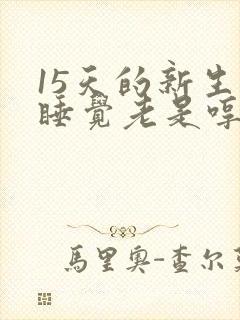 15天的新生
睡覺老是哼
馬里奧-查尔莫